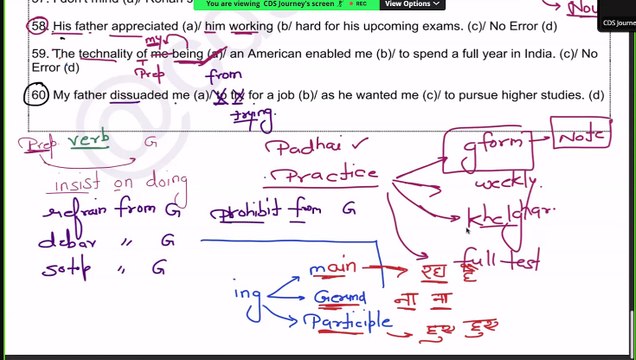 You are viewing CDS Journey's screen
REC
View Options
58. His father appreciated (a)/ him working (b/ hard for his upcoming exams. (c)/ No Error (d)
my
59. The technality of me being (a)/ an American enabled me (b)/ to spend a full year in India. (c)/ No
Error (d)
Prep
from
60. My father dissuaded me (a)/ to try for a job (b)/ as he wanted me (c)/ to pursue higher studies. (d)
trying.
Prep verb G
insist on doing
refrain from G
debar " G
sotop " G
prohibit from G
Padhai ✓
Practice
gform
Note
weekly.
khelghar.
full test
ing
main
रहा है
Gerund
ना ना
Participle
हुए हुए